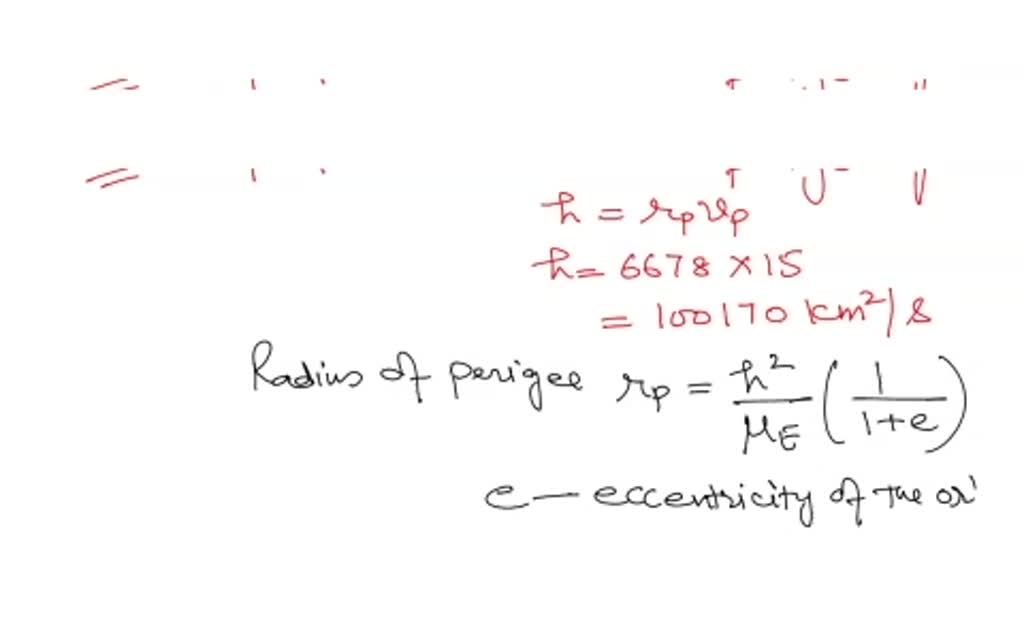 h = rₚvₚ
h = 6678 × 15
= 100170 km²/s
Radius of perigee rₚ = h²/μ_E (1/(1+e))
e — eccentricity of the